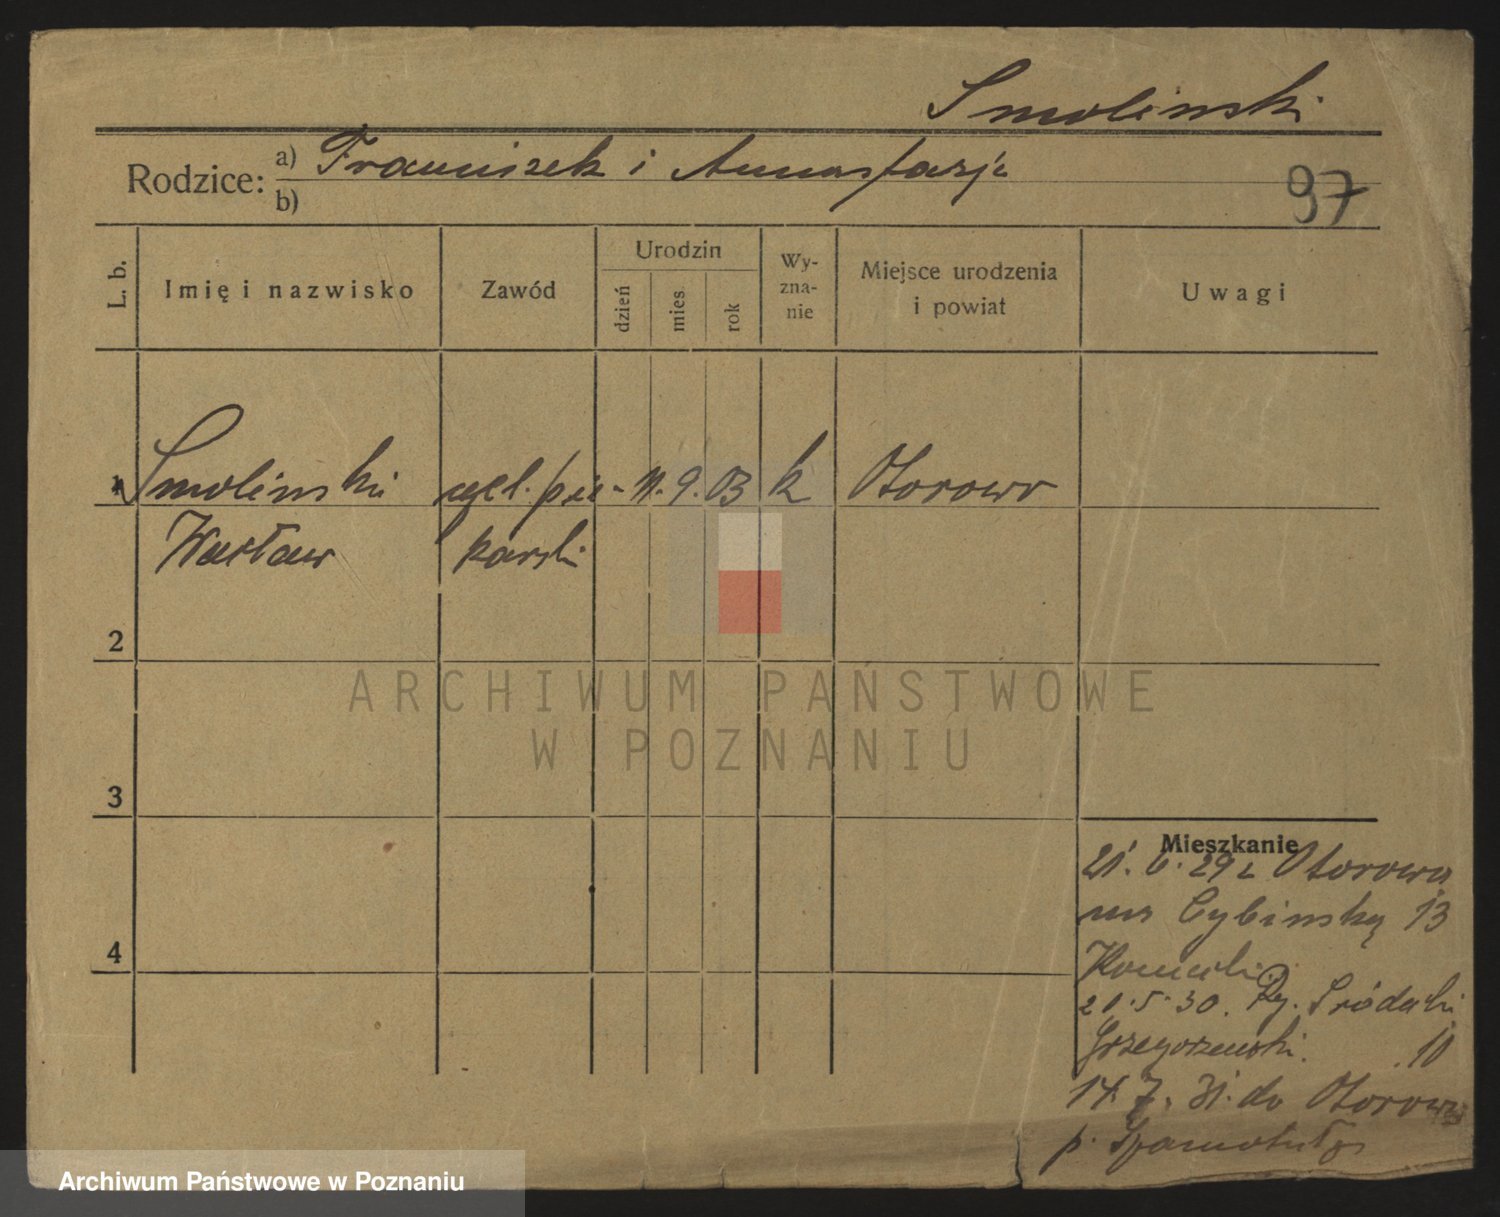 Smolinski
Rodzice: a) Franciszek i Anastazja
b)
97
L. b.
Imię i nazwisko
Zawód
Urodzin
dzień
mies.
rok
Wy-
zna-
nie
Miejsce urodzenia
i powiat
Uwagi
1 Smolinski czel. pie- 11. 9. 03 k Otorowo
Wacław karski
2
ARCHIWUM PAŃSTWOWE
W POZNANIU
3
Mieszkanie
21. 6. 29 z Otorowa
na Cybińską 13
4
21. 5. 30. Ry. Śródecki
Grzegorzewski. 10
14. 7. 31. do Otorowa
p. Szamotuły
Archiwum Państwowe w Poznaniu